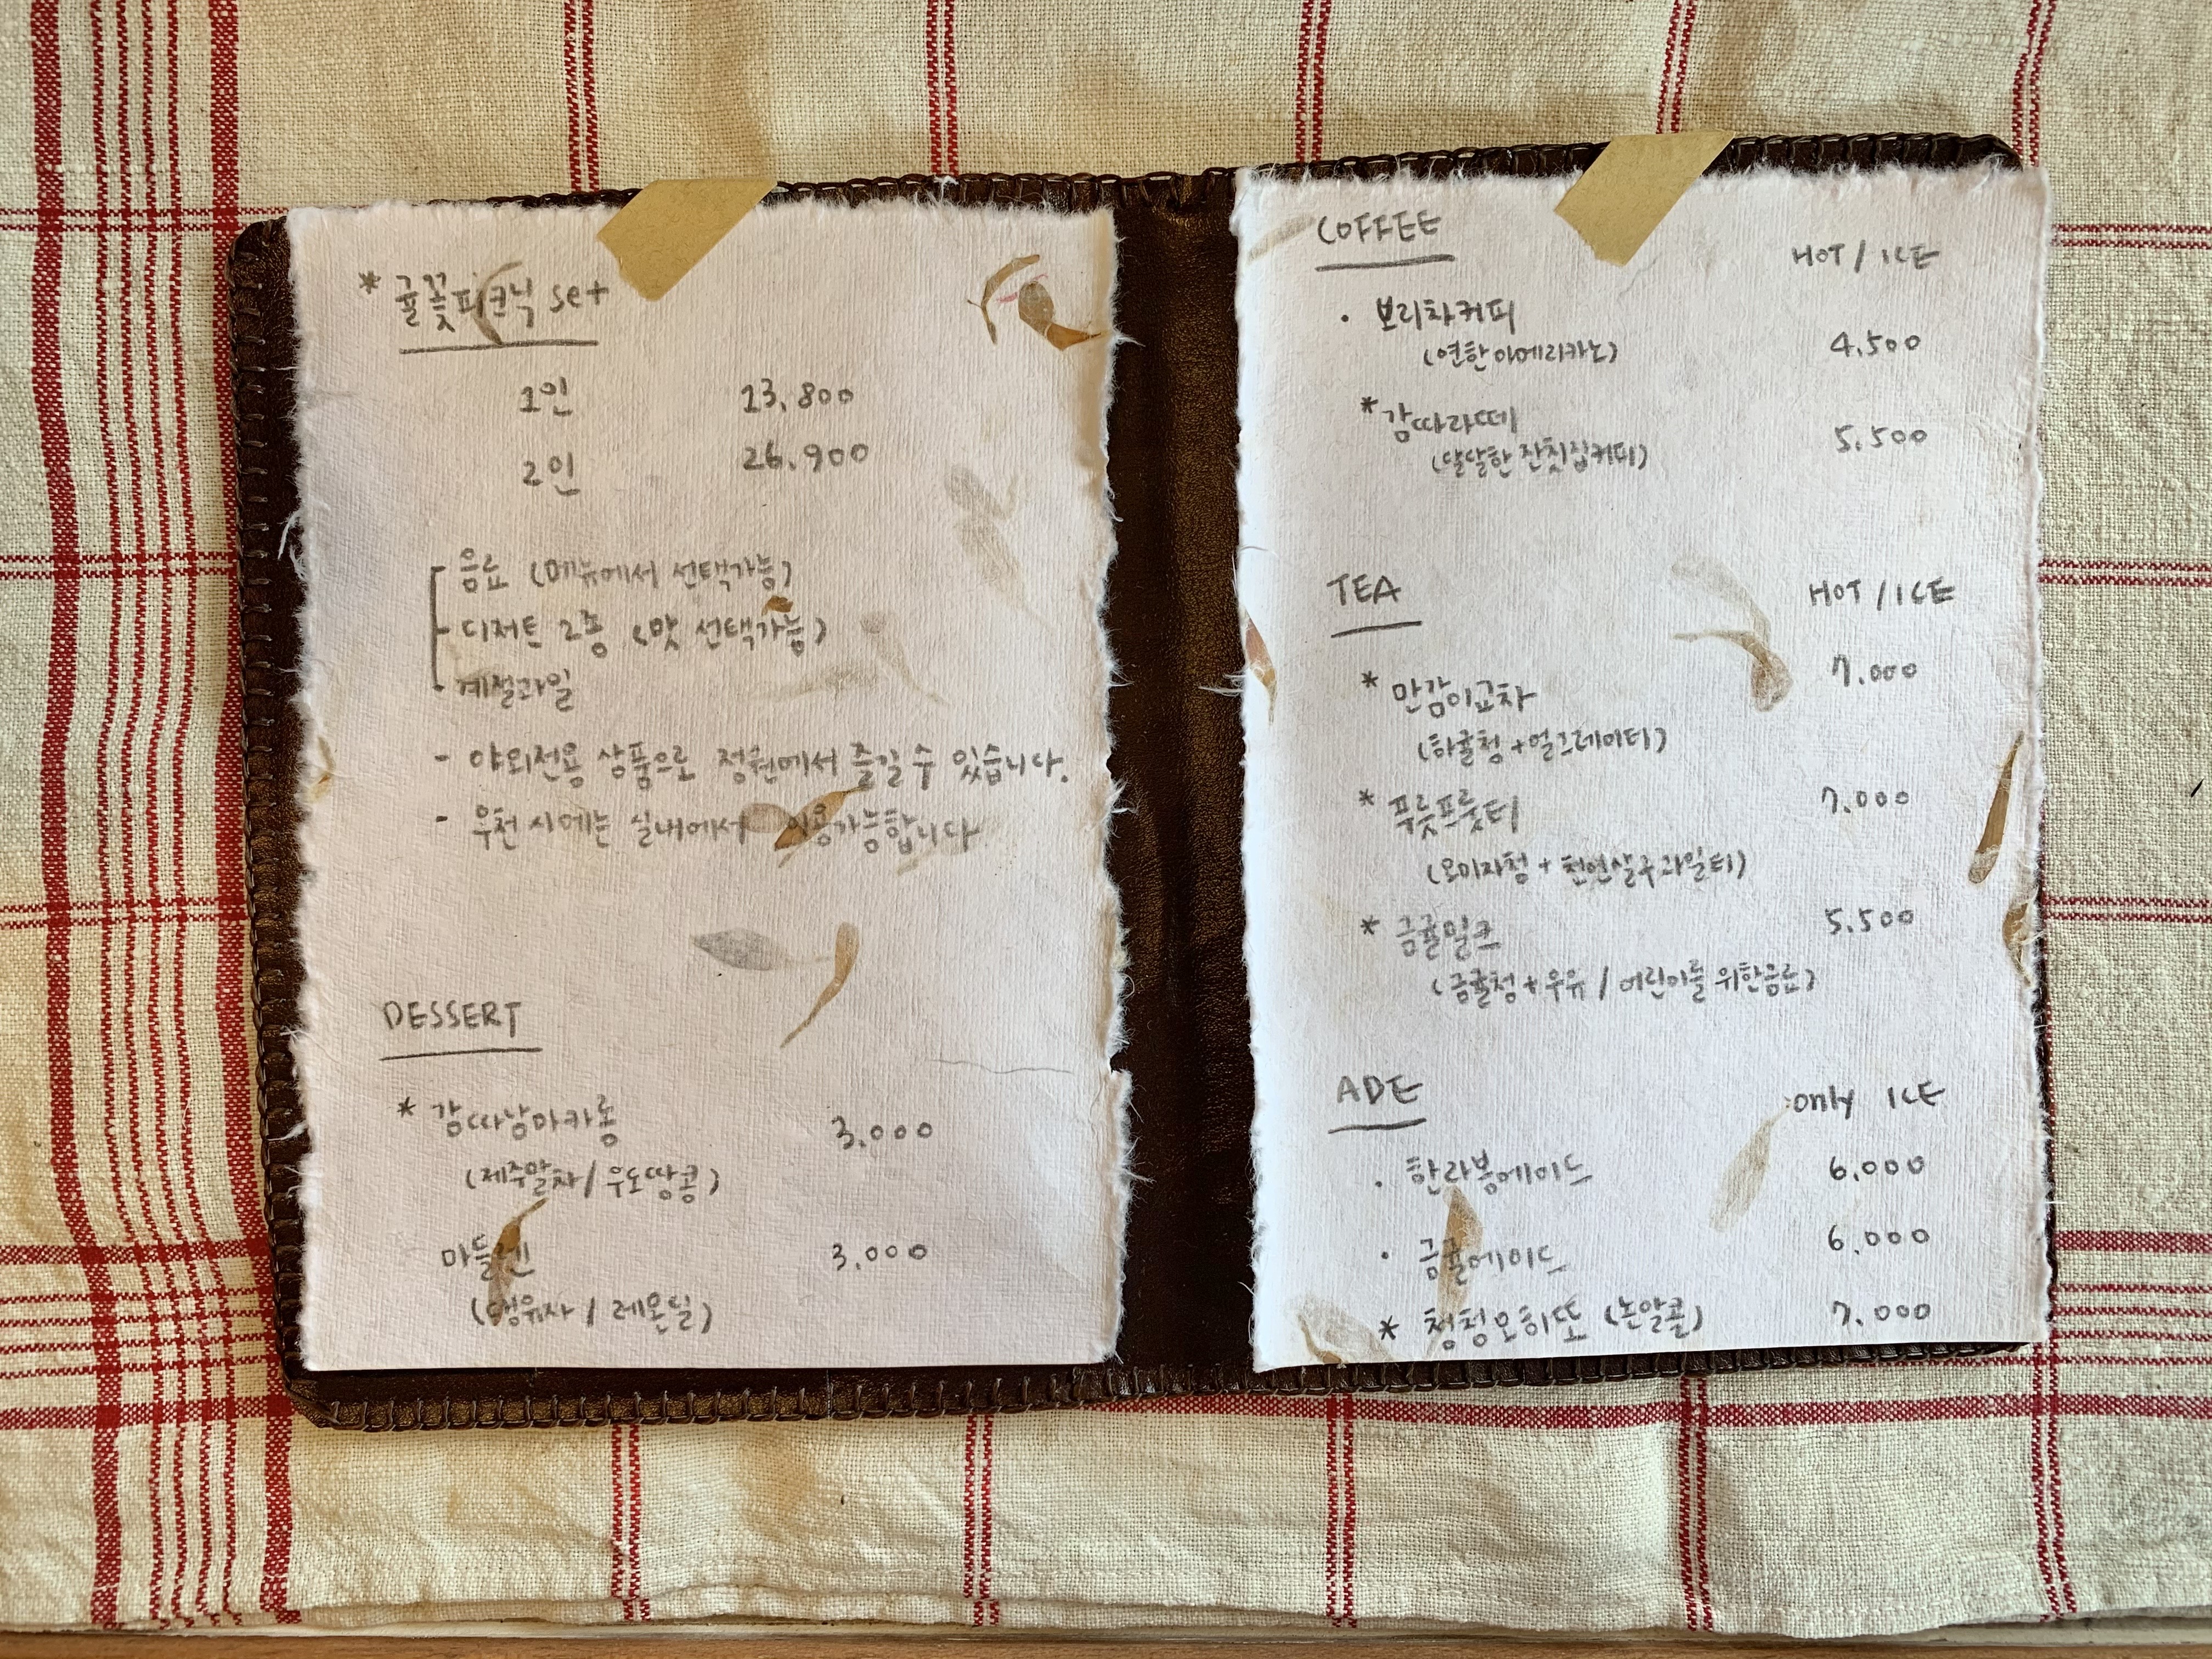 * 귤꽃피크닉 set
1인 13,800
2인 26,900
음료 (메뉴에서 선택가능)
디저트 2종 (맛 선택가능)
계절과일
- 야외전용 상품으로 정원에서 즐길 수 있습니다.
- 우천 시에는 실내에서 이용가능합니다
DESSERT
* 감따남마카롱 3.000
(제주말차 / 우도땅콩)
마들렌 3,000
(댕유자 / 레몬딜)
COFFEE HOT / ICE
· 보리차커피
(연한아메리카노) 4.500
* 감따라떼 5.500
(달달한 잔칫집커피)
TEA HOT / ICE
* 만감이교차 7.000
(하귤청 + 얼그레이티)
* 푸릇프룻티 7.000
(오미자청 + 천연살구과일티)
* 금귤밀크 5.500
(금귤청 + 우유 / 어린이를 위한음료)
ADE only ICE
· 한라봉에이드 6.000
· 금귤에이드 6.000
* 청청오히또 (논알콜) 7.000